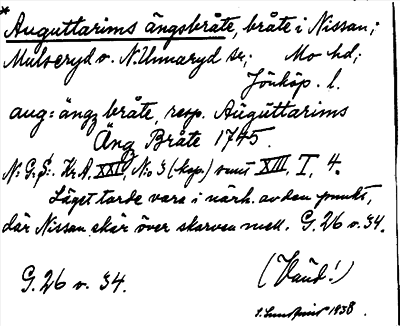 * Auguttarims ängsbråte, bråte i Nissan;
Mulseryd o. N. Unnaryd sr; Mo hd;
Jönköp. l.
aug: ängz bråte, resp. Auguttarims
Äng Bråte 1745.
N: G: S: Kr. A. XXI, N:o 3 (kop) samt XIII, I, 4.
Läget torde vara i närh. av den punkt,
där Nissan skär över skarven mell. G. 26 v. 34.
G. 26 v. 34. (Vaud!)
1938